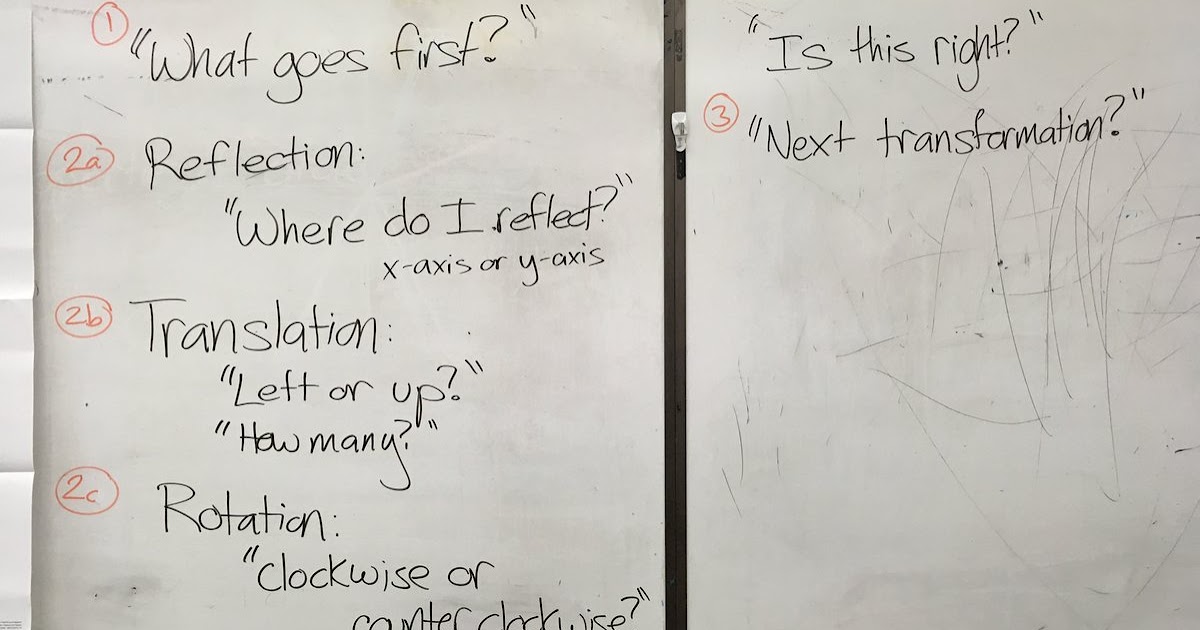 ① "What goes first?"
2a Reflection:
"Where do I reflect?"
x-axis or y-axis
2b Translation:
"Left or up?"
"How many?"
2c Rotation:
"clockwise or
counterclockwise?"
"Is this right?"
③ "Next transformation?"